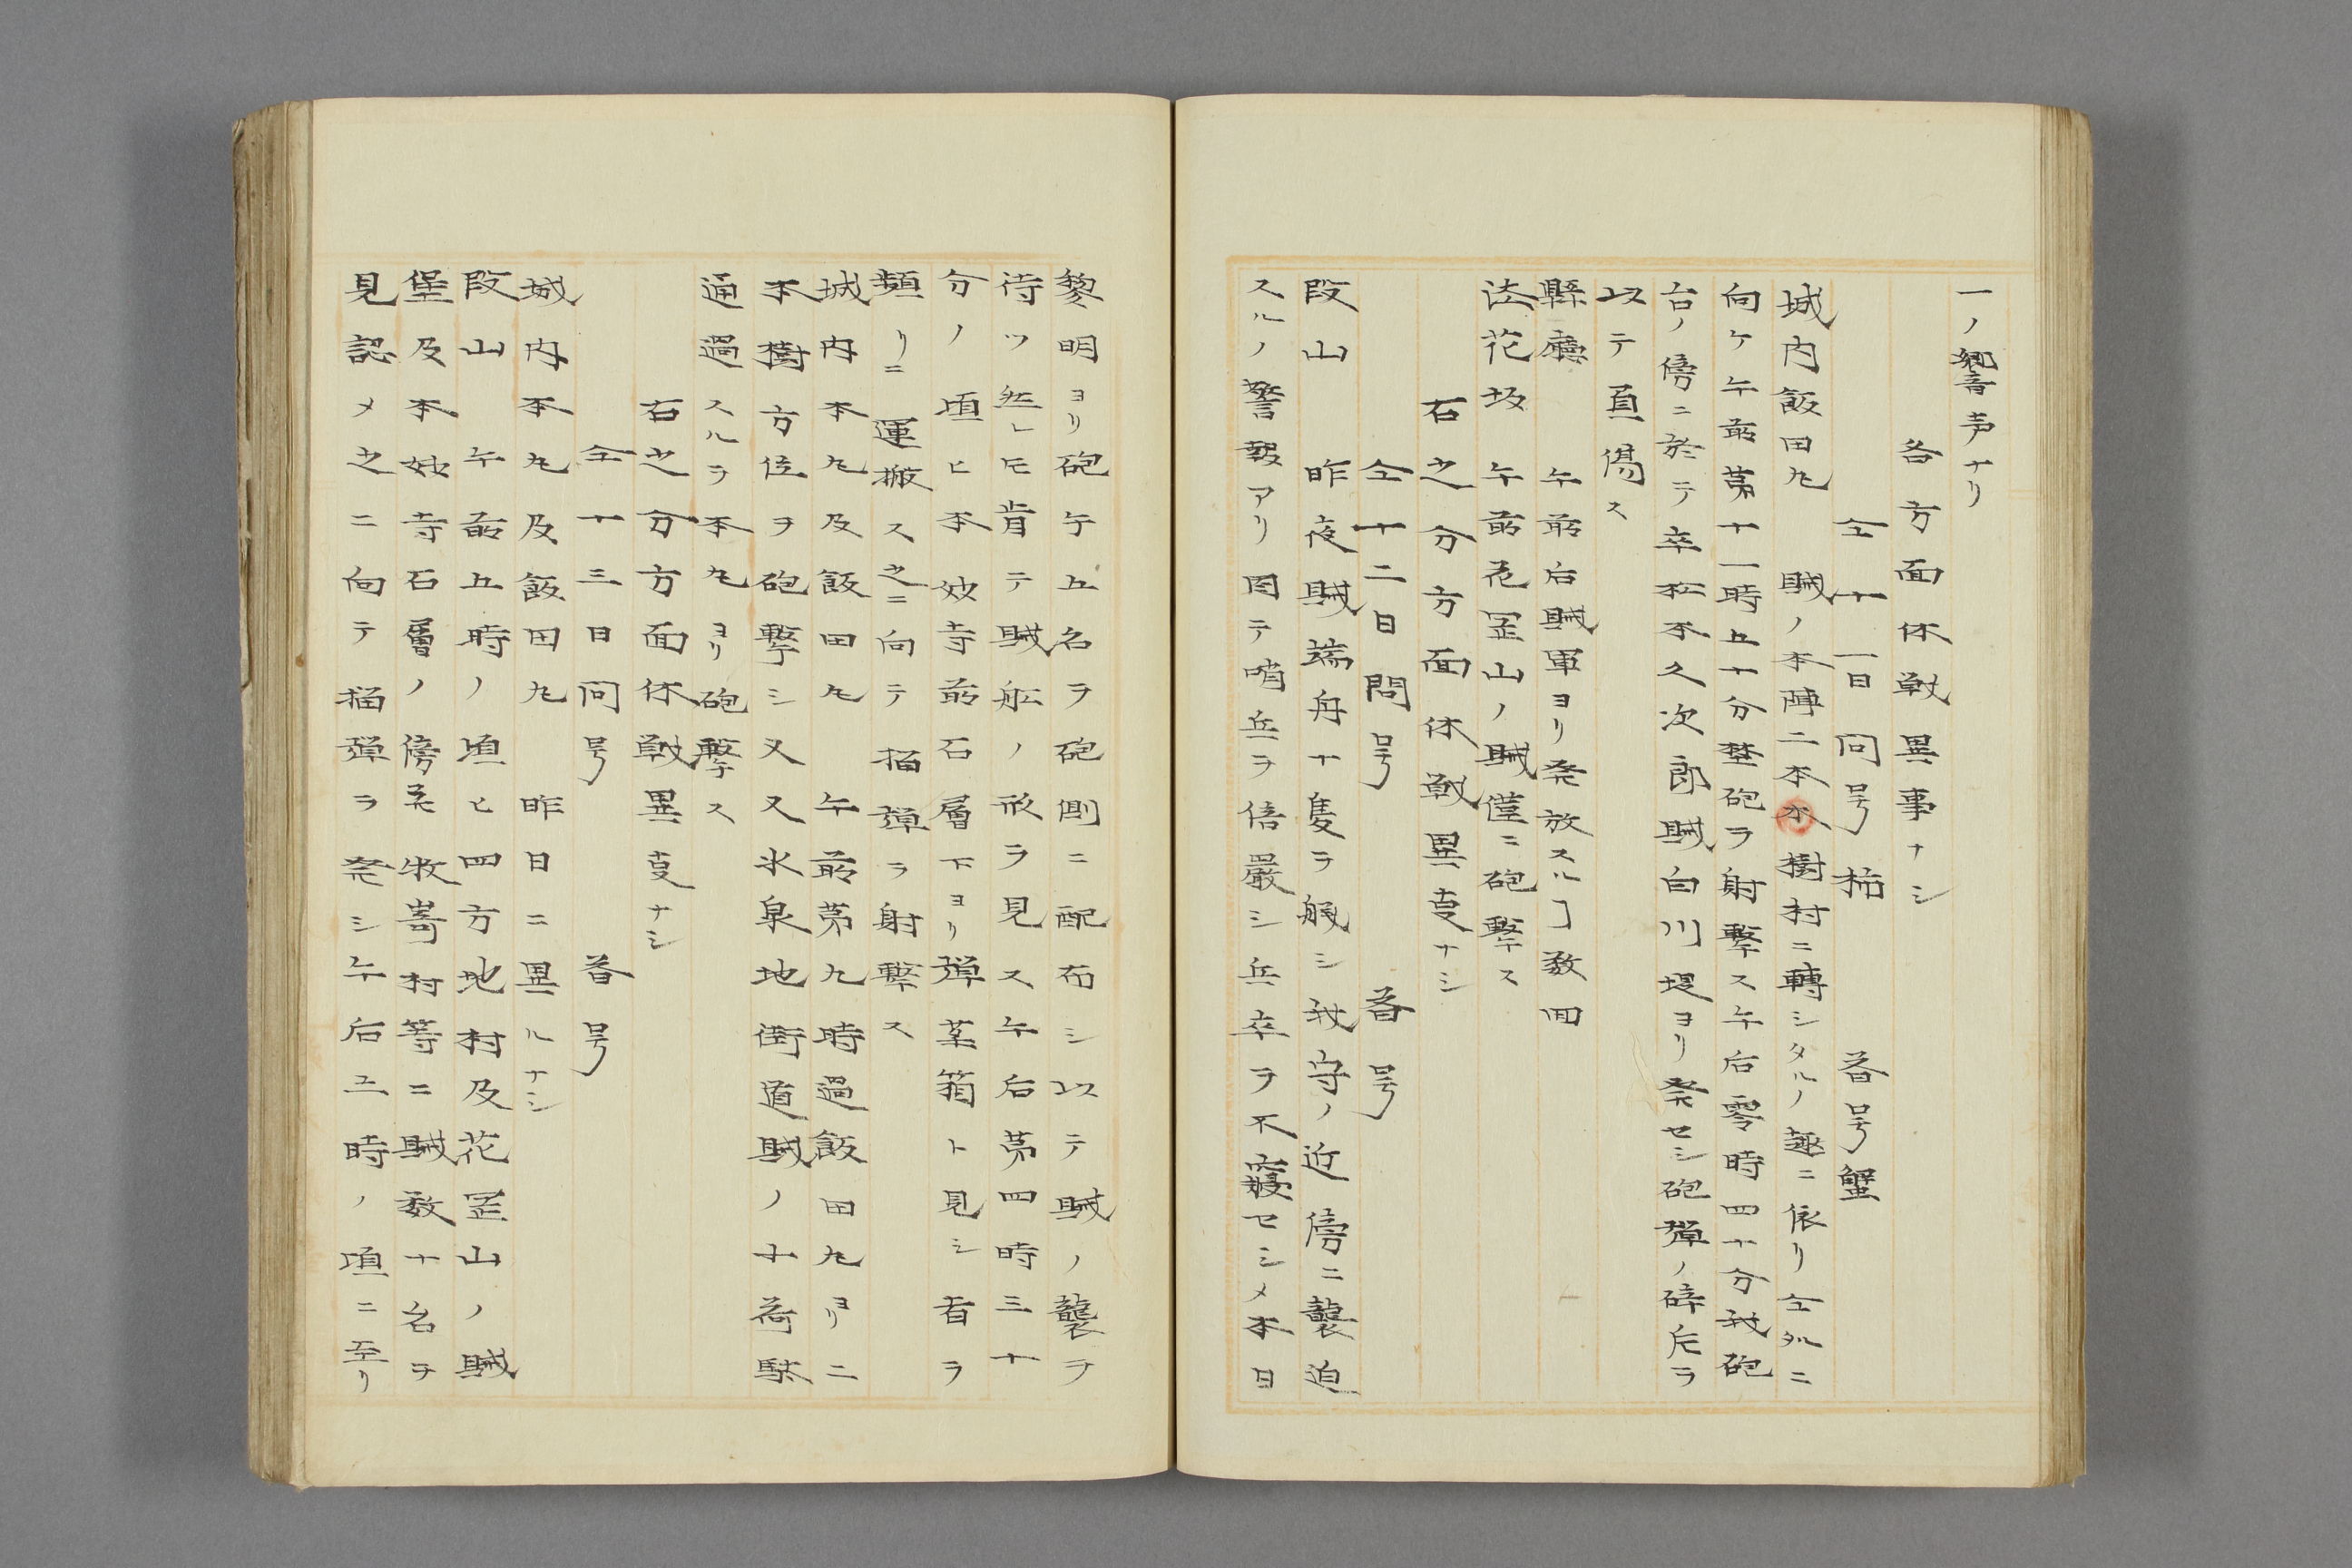 一ノ響声ナリ
各方面休戦異事ナシ
仝十一日 問号 柿 答号 蟹
城内飯田丸 賊ノ本陣二本木樹村ニ轉シタルノ趣ニ依リ仝処ニ
向ケ午前第十一時五十分埜砲ヲ射撃ス午后零時四十分我砲
台ノ傍ニ於テ卒松本久次郎賊白川堤ヨリ発セシ砲弾ノ碎片ヲ
以テ負傷ス
縣廳 午前后賊軍ヨリ発放スルヿ数回
法花坂 午前花罡山ノ賊僅ニ砲撃ス
右之分方面休戦異事ナシ
仝十二日 問号 答号
段山 昨夜賊端舟十隻ヲ艤シ我守ノ近傍ニ襲迫
スルノ警報アリ因テ哨兵ヲ倍嚴シ兵卒ヲ不寢セシメ本日
黎明ヨリ砲手五名ヲ砲側ニ配布シ以テ賊ノ襲ヲ
待ツ然レ𪜈肯テ賊舩ノ形ヲ見ス午后第四時三十
分ノ頃ヒ本妙寺前石層下ヨリ弾茎箱ト見シ者ヲ
頻リニ運搬ス之ニ向テ榴弾ヲ射撃ス
城内本丸及飯田丸 午前第九時過飯田丸ヨリ二
本樹方位ヲ砲撃シ又又氷泉地街道賊ノ小荷駄
通過スルヲ本丸ヨリ砲撃ス
右之分方面休戦異事ナシ
仝十三日 問号 答号
城内本丸及飯田丸 昨日ニ異ルナシ
段山 午前五時ノ頃ヒ四方地村及花罡山ノ賊
堡及本妙寺石層ノ傍柔牧嵜村等ニ賊数十名ヲ
見認メ之ニ向テ榴弾ヲ発シ午后工時ノ頃ニ至リ